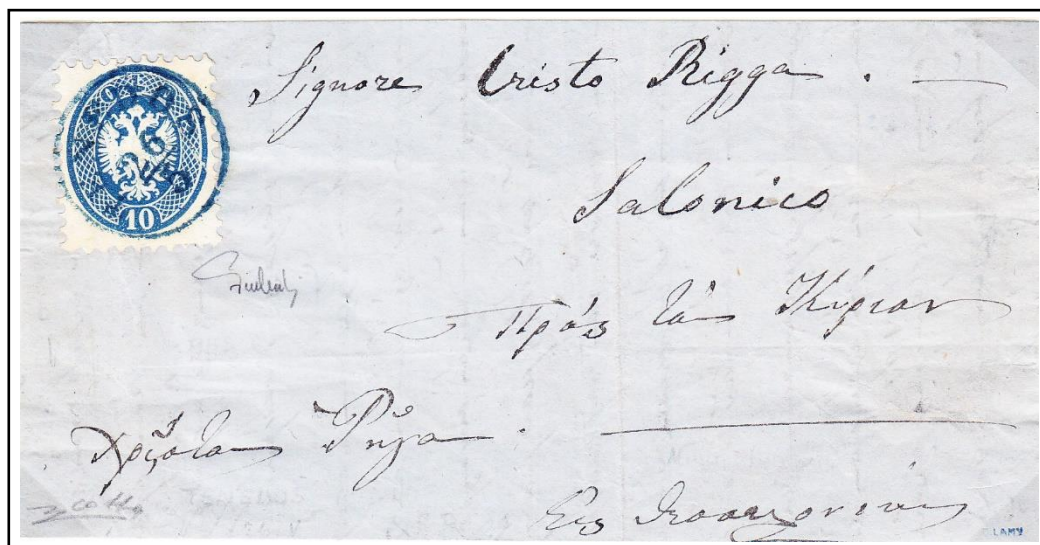 Signore Cristo Rigga. —
Salonico
Πρὸς τὸν Κύριον
Χρίστον Ρήγα.
Εἰς Θεσσαλονίκην
SOLD
10
26
LAMY